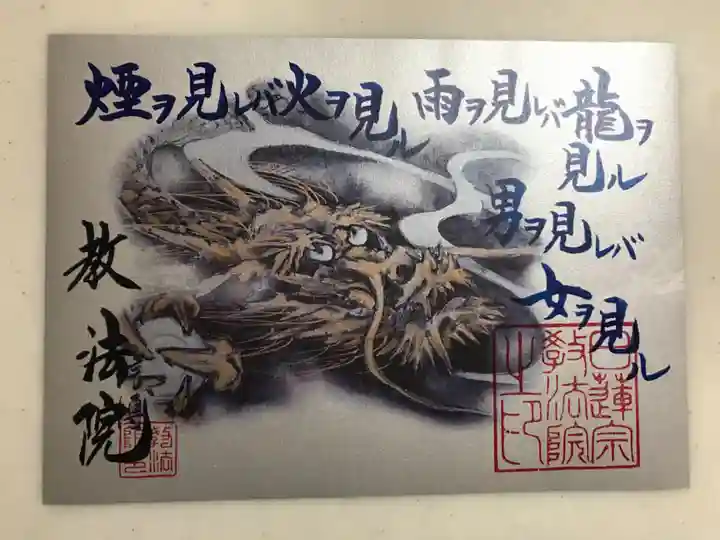 煙ヲ見レバ火ヲ見ル
雨ヲ見レバ龍ヲ見ル
男ヲ見レバ
女ヲ見ル
教法院
日蓮宗
教法院
之印